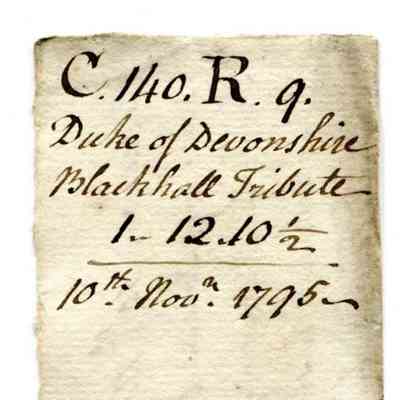 C. 140. R. 9.
Duke of Devonshire
Blackhall Tribute
1.. 12..10 ½
10th. Novr. 1795